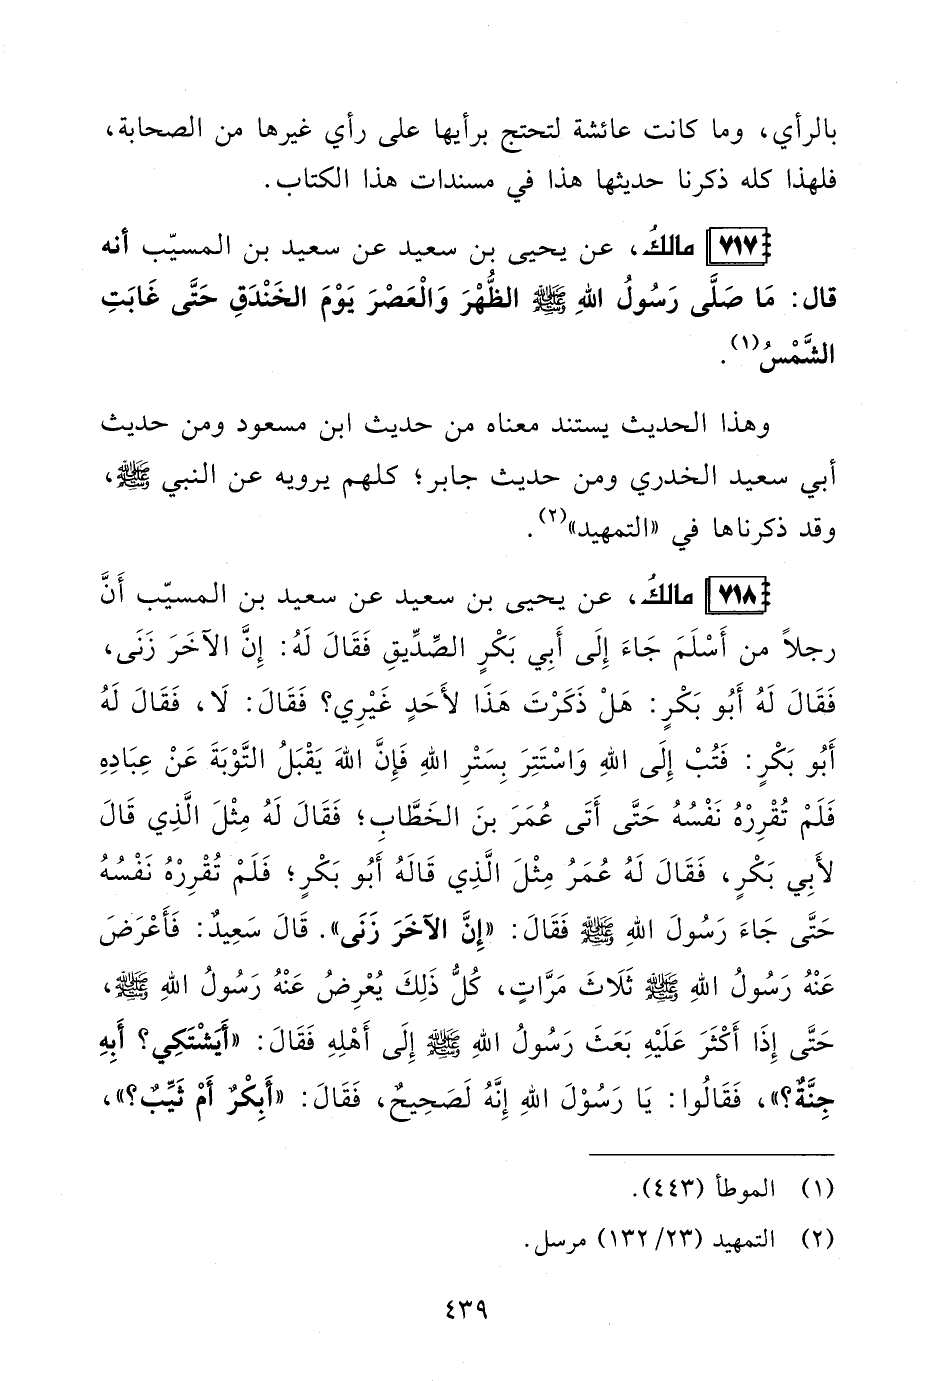 بالرأي، وما كانت عائشة لتحتج برأيها على رأي غيرها من الصحابة،
فلهذا كله ذكرنا حديثها هذا في مسندات هذا الكتاب.
٧١٧ مالكُ، عن يحيى بن سعيد عن سعيد بن المسيّب أنه
قال: مَا صَلَّى رَسُولُ اللهِ ﷺ الظُّهْرَ وَالْعَصْرَ يَوْمَ الخَنْدَقِ حَتَّى غَابَتِ
الشَّمْسُ(١).
وهذا الحديث يستند معناه من حديث ابن مسعود ومن حديث
أبي سعيد الخدري ومن حديث جابر؛ كلهم يرويه عن النبي ﷺ،
وقد ذكرناها في «التمهيد»(٢).
٧١٨ مالكُ، عن يحيى بن سعيد عن سعيد بن المسيّب أَنَّ
رجلاً من أَسْلَمَ جَاءَ إِلَى أَبِي بَكْرٍ الصِّدِّيقِ فَقَالَ لَهُ: إِنَّ الآخَرَ زَنَى،
فَقَالَ لَهُ أَبُو بَكْرٍ: هَلْ ذَكَرْتَ هَذَا لأَحَدٍ غَيْرِي؟ فَقَالَ: لَا، فَقَالَ لَهُ
أَبُو بَكْرٍ: فَتُبْ إِلَى اللهِ وَاسْتَتِرَ بِسَتْرِ اللهِ فَإِنَّ اللهَ يَقْبَلُ التَّوْبَةَ عَنْ عِبَادِهِ
فَلَمْ تُقْرِرْهُ نَفْسُهُ حَتَّى أَتَى عُمَرَ بنَ الخَطَّابِ؛ فَقَالَ لَهُ مِثْلَ الَّذِي قَالَ
لأَبِي بَكْرٍ، فَقَالَ لَهُ عُمَرُ مِثْلَ الَّذِي قَالَهُ أَبُو بَكْرٍ؛ فَلَمْ تُقْرِرْهُ نَفْسُهُ
حَتَّى جَاءَ رَسُولَ اللهِ ﷺ فَقَالَ: «إِنَّ الآخَرَ زَنَى». قَالَ سَعِيدٌ: فَأَعْرَضَ
عَنْهُ رَسُولُ اللهِ ﷺ ثَلَاثَ مَرَّاتٍ، كُلُّ ذَلِكَ يُعْرِضُ عَنْهُ رَسُولُ اللهِ ﷺ،
حَتَّى إِذَا أَكْثَرَ عَلَيْهِ بَعَثَ رَسُولُ اللهِ ﷺ إِلَى أَهْلِهِ فَقَالَ: «أَيَشْتَكِي؟ أَبِهِ
جِنَّةٌ؟»، فَقَالُوا: يَا رَسُوْلَ اللهِ إِنَّهُ لَصَحِيحٌ، فَقَالَ: «أَبِكْرٌ أَمْ ثَيِّبٌ؟»،
(١) الموطأ (٤٤٣).
(٢) التمهيد (٢٣/ ١٣٢) مرسل.
٤٣٩